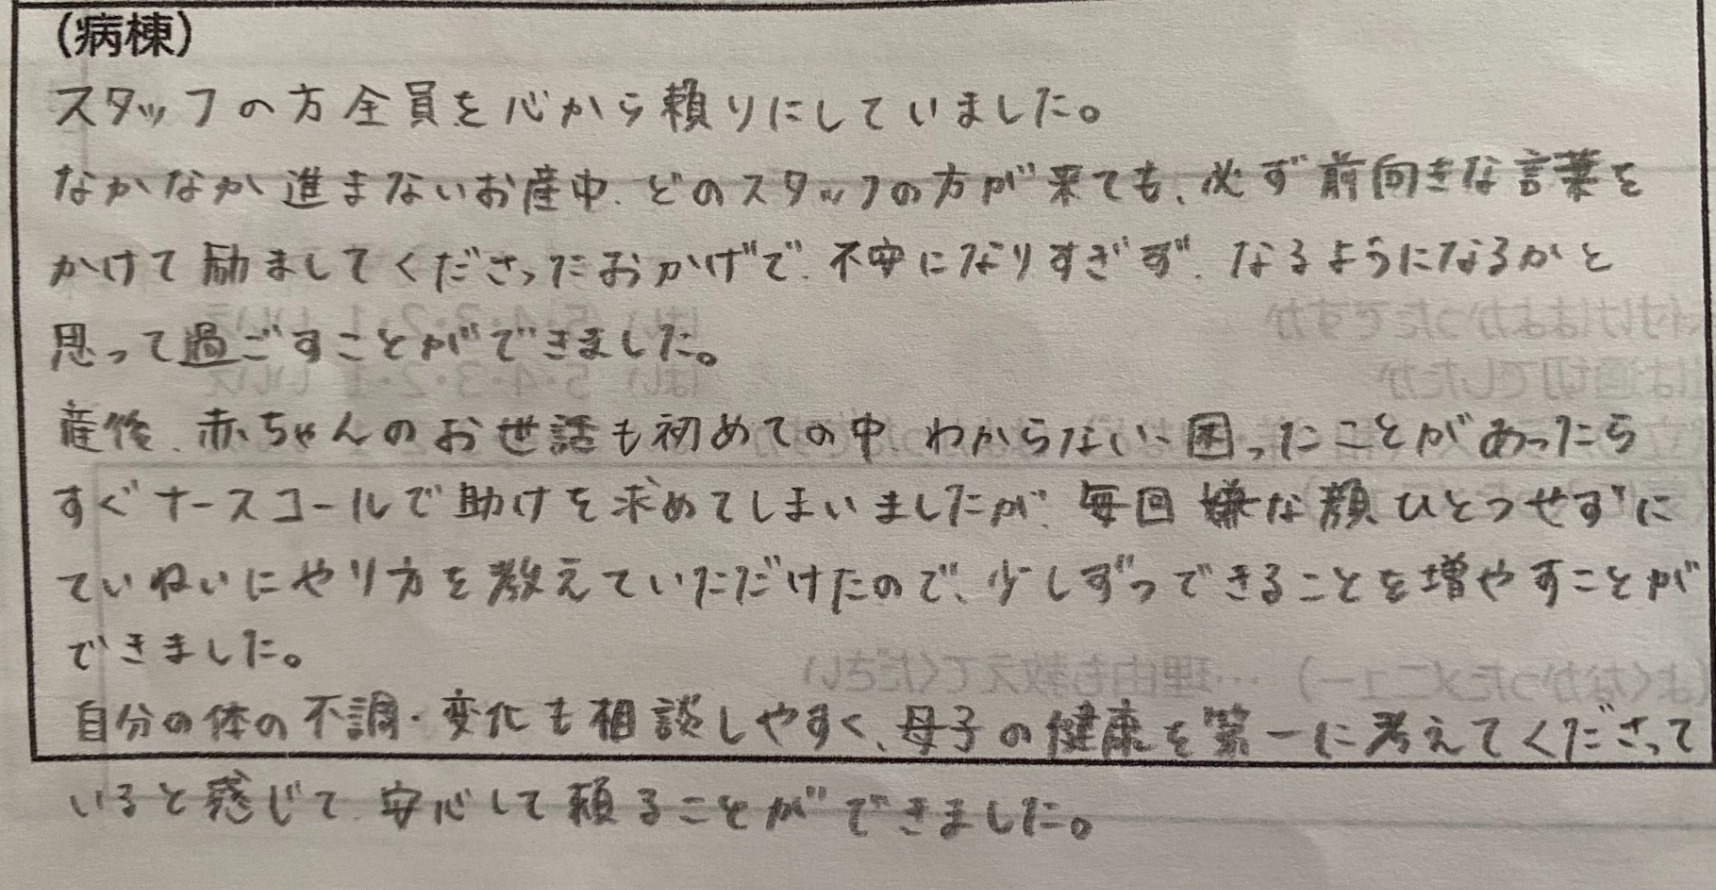 (病棟)
スタッフの方全員を心から頼りにしていました。
なかなか進まないお産中、どのスタッフの方が来ても、必ず前向きな言葉を
かけて励ましてくださったおかげで、不安になりすぎず、なるようになるかと
思って過ごすことができました。
産後、赤ちゃんのお世話も初めての中、わからない、困ったことがあったら
すぐナースコールで助けを求めてしまいましたが、毎回嫌な顔ひとつせずに
ていねいにやり方を教えていただけたので、少しずつできることを増やすことが
できました。
自分の体の不調・変化も相談しやすく、母子の健康を第一に考えてくださって
いると感じて、安心して頼ることができました。